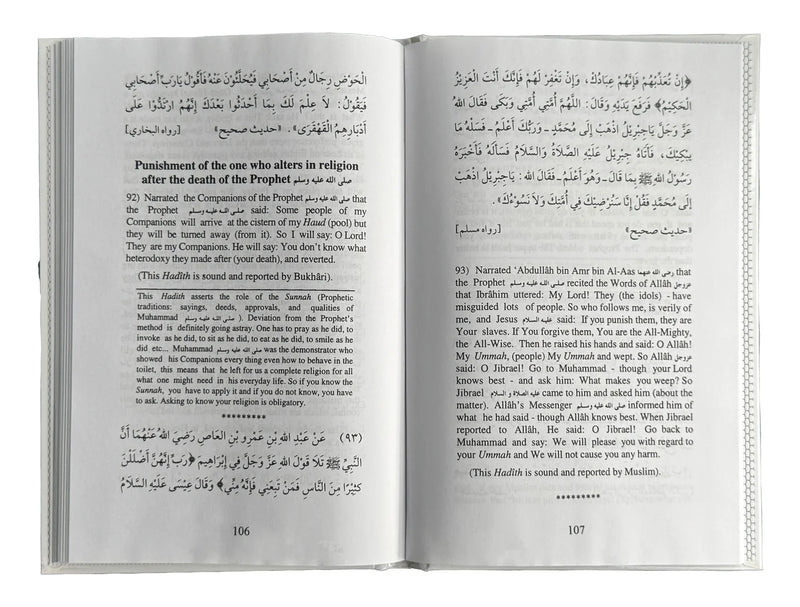 الْحَوْضِ رِجَالٌ مِنْ أَصْحَابِي فَيُحَلَّئُونَ عَنْهُ فَأَقُولُ يَارَبِّ أَصْحَابِي
فَيَقُولُ: لَا عِلْمَ لَكَ بِمَا أَحْدَثُوا بَعْدَكَ إِنَّهُمُ ارْتَدُّوا عَلَى
أَدْبَارِهِمُ الْقَهْقَرَى». «حديث صحيح» [رواه البخاري]
Punishment of the one who alters in religion
after the death of the Prophet صلى الله عليه وسلم
92) Narrated the Companions of the Prophet صلى الله عليه وسلم that
the Prophet صلى الله عليه وسلم said: Some people of my
Companions will arrive at the cistern of my Haud (pool) but
they will be turned away (from it). So I will say: O Lord!
They are my Companions. He will say: You don't know what
heterodoxy they made after (your death), and reverted.
(This Hadîth is sound and reported by Bukhâri).
This Hadith asserts the role of the Sunnah (Prophetic
traditions: sayings, deeds, approvals, and qualities of
Muhammad صلى الله عليه وسلم). Deviation from the Prophet's
method is definitely going astray. One has to pray as he did, to
invoke as he did, to sit as he did, to eat as he did, to smile as he
did etc... Muhammad صلى الله عليه وسلم was the demonstrator who
showed his Companions every thing even how to behave in the
toilet, this means that he left for us a complete religion for all
what one might need in his everyday life. So if you know the
Sunnah, you have to apply it and if you do not know, you have
to ask. Asking to know your religion is obligatory.
*********
(٩٣) عَنْ عَبْدِ اللهِ بْنِ عَمْرِو بْنِ الْعَاصِ رَضِيَ اللهُ عَنْهُمَا أَنَّ
النَّبِيَّ ﷺ تَلَا قَوْلَ اللهِ عَزَّ وَجَلَّ فِي إِبْرَاهِيمَ ﴿رَبِّ إِنَّهُنَّ أَضْلَلْنَ
كَثِيْرًا مِنَ النَّاسِ فَمَنْ تَبِعَنِي فَإِنَّهُ مِنِّي﴾ وَقَالَ عِيْسَى عَلَيْهِ السَّلَامُ
106
﴿إِنْ تُعَذِّبْهُمْ فَإِنَّهُمْ عِبَادُكَ، وَإِنْ تَغْفِرْ لَهُمْ فَإِنَّكَ أَنْتَ الْعَزِيْزُ
الْحَكِيْمُ﴾ فَرَفَعَ يَدَيْهِ وَقَالَ: اللَّهُمَّ أُمَّتِي أُمَّتِي وَبَكَى فَقَالَ اللهُ
عَزَّ وَجَلَّ يَاجِبْرِيْلُ اذْهَبْ إِلَى مُحَمَّدٍ - وَرَبُّكَ أَعْلَمُ - فَسَلْهُ مَا
يُبْكِيْكَ، فَأَتَاهُ جِبْرِيْلُ عَلَيْهِ الصَّلَاةُ وَالسَّلَامُ فَسَأَلَهُ فَأَخْبَرَهُ
رَسُوْلُ اللهِ ﷺ بِمَا قَالَ - وَهُوَ أَعْلَمُ - فَقَالَ اللهُ: يَاجِبْرِيْلُ اذْهَبْ
إِلَى مُحَمَّدٍ فَقُلْ إِنَّا سَنُرْضِيْكَ فِي أُمَّتِكَ وَلَا نَسُوْءُكَ».
«حديث صحيح» [رواه مسلم]
93) Narrated 'Abdullâh bin Amr bin Al-Aas رضي الله عنهما that
the Prophet صلى الله عليه وسلم recited the Words of Allâh عزوجل
that Ibrâhim uttered: My Lord! They (the idols) - have
misguided lots of people. So who follows me, is verily of
me, and Jesus عليه السلام said: If you punish them, they are
Your slaves. If You forgive them, You are the All-Mighty,
the All-Wise. Then he raised his hands and said: O Allâh!
My Ummah, (people) My Ummah and wept. So Allâh عزوجل
said: O Jibrael! Go to Muhammad - though your Lord
knows best - and ask him: What makes you weep? So
Jibrael عليه الصلاة و السلام came to him and asked him (about the
matter). Allâh's Messenger صلى الله عليه وسلم informed him of
what he had said - though Allâh knows best. When Jibrael
reported to Allâh, He said: O Jibrael! Go back to
Muhammad and say: We will please you with regard to
your Ummah and We will not cause you any harm.
(This Hadîth is sound and reported by Muslim).
*********
107